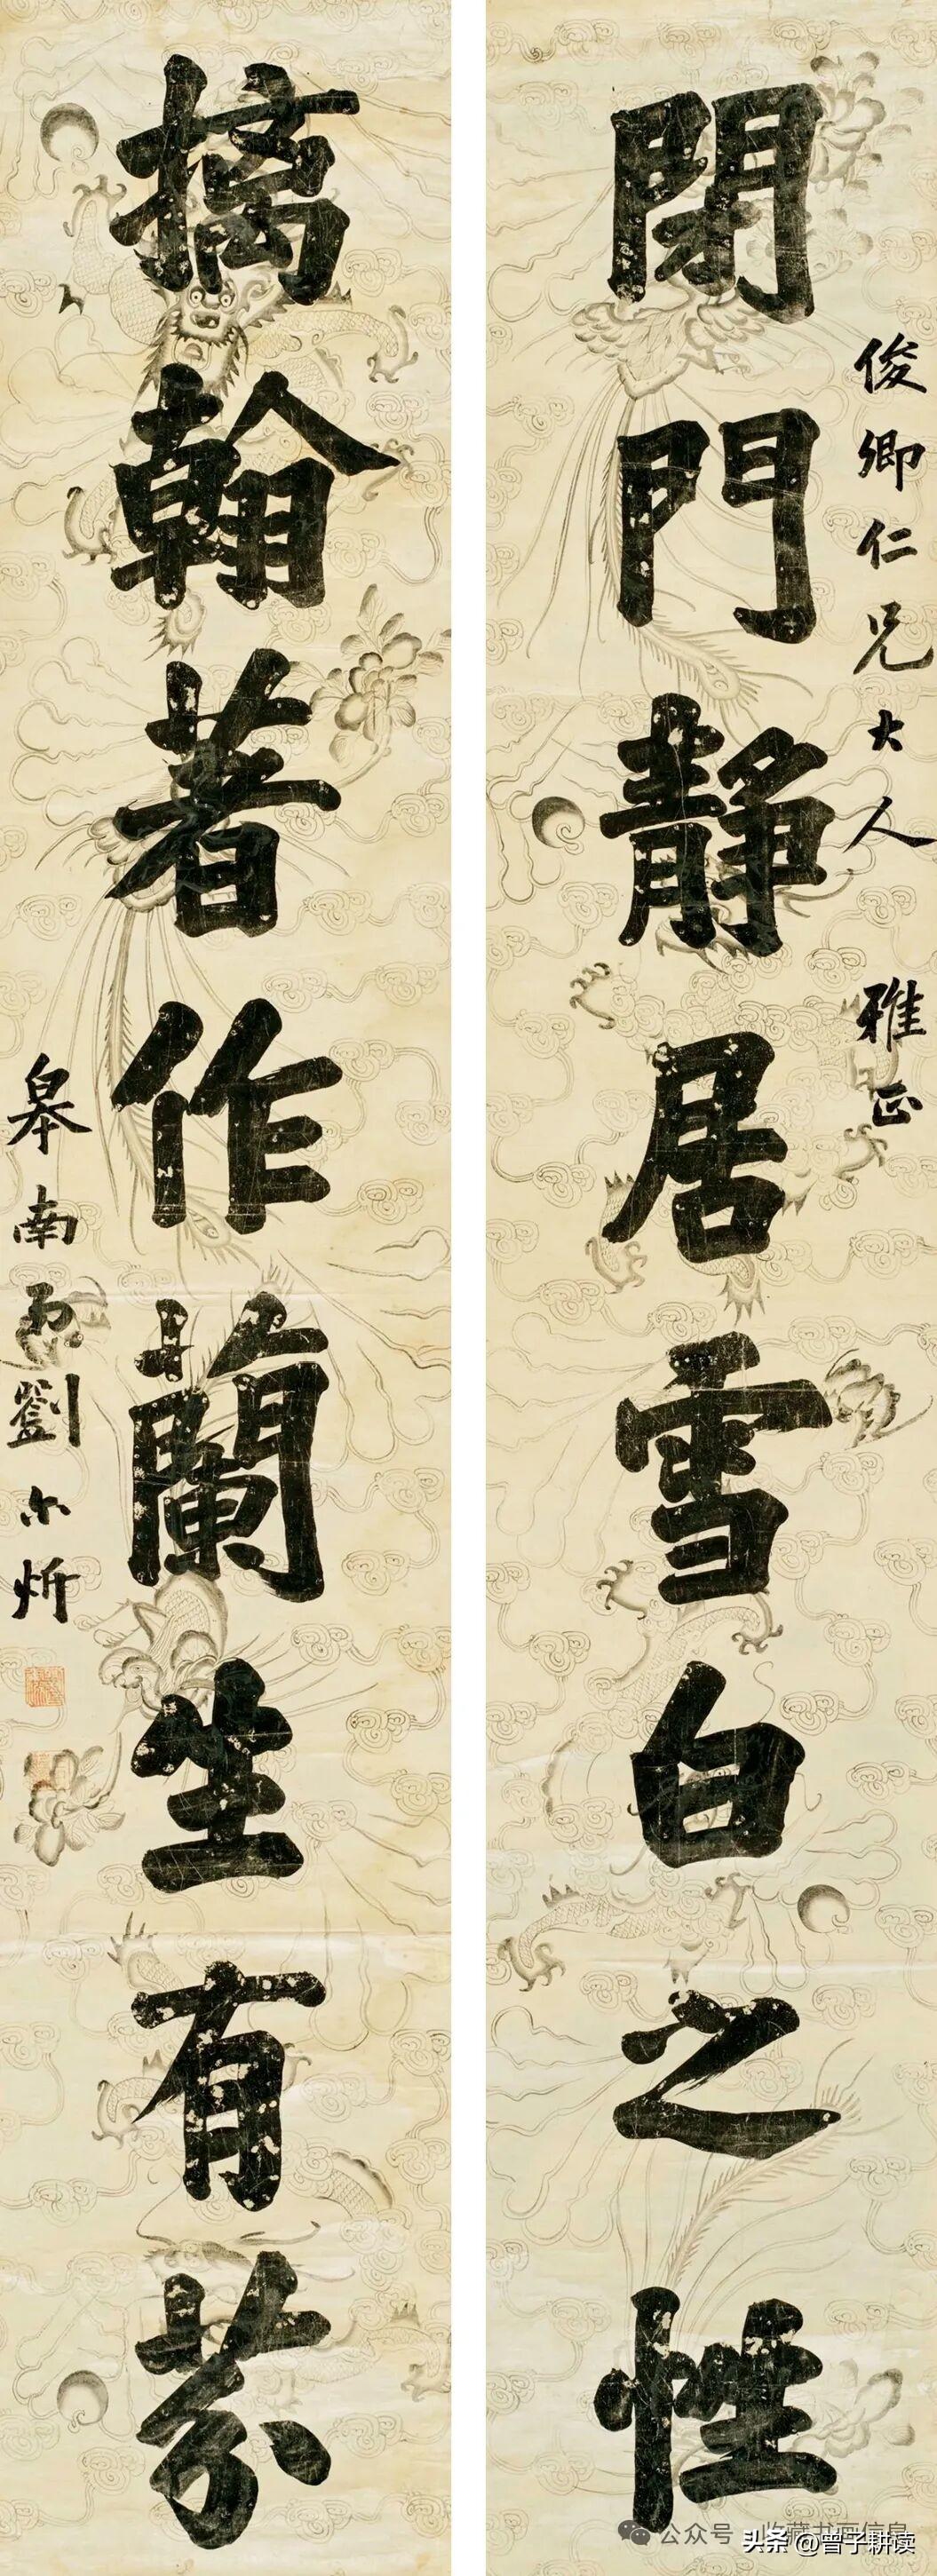 俊卿仁兄大人 雅正
閉門靜居雪白之性
摛翰著作蘭坐有芬
皋南 劉尒炘
公众号 · 收藏书画信息
头条 @曾子耕读